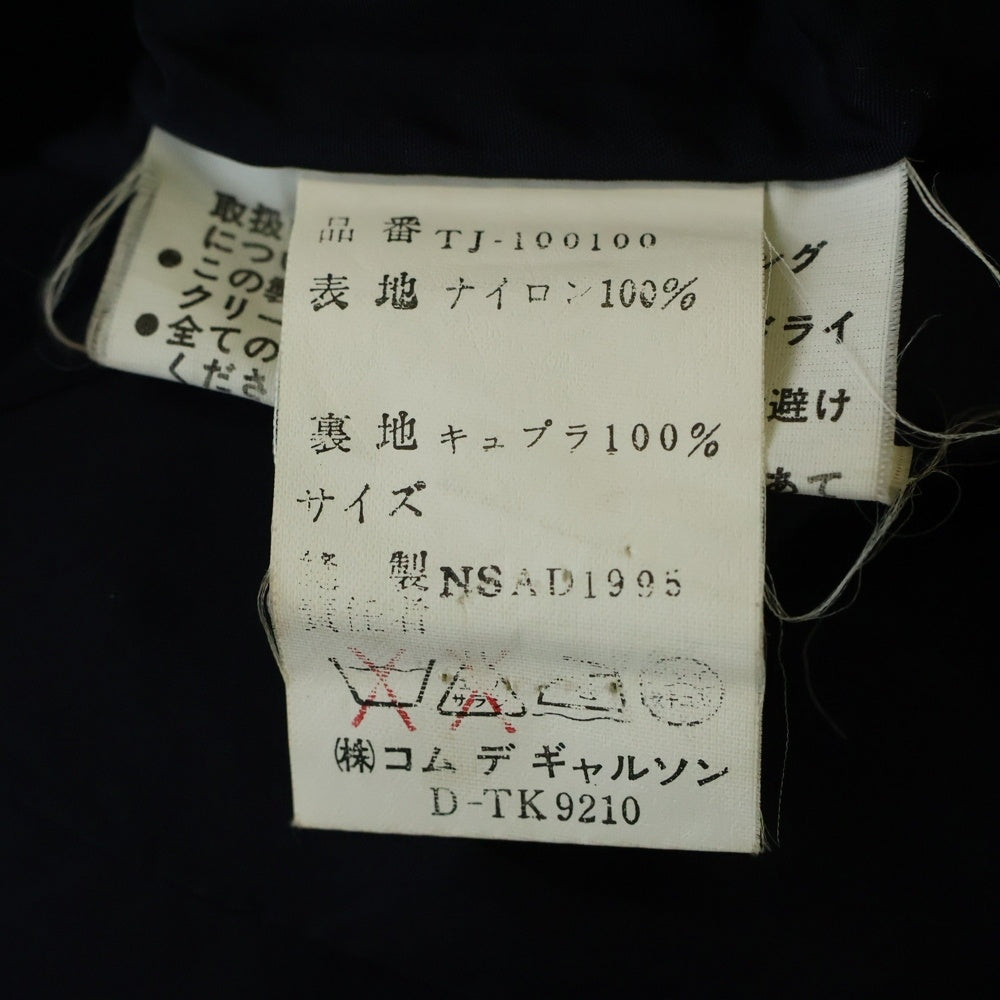 品番 TJ-100100
表地 ナイロン100%
裏地 キュプラ100%
サイズ
縫製 NSAD1995
責任者
サラシ
(株)コム デ ギャルソン
D-TK9210
取扱
につい
●このリー
ク
●全ての
くださ
ング
ドライ
避け
あて